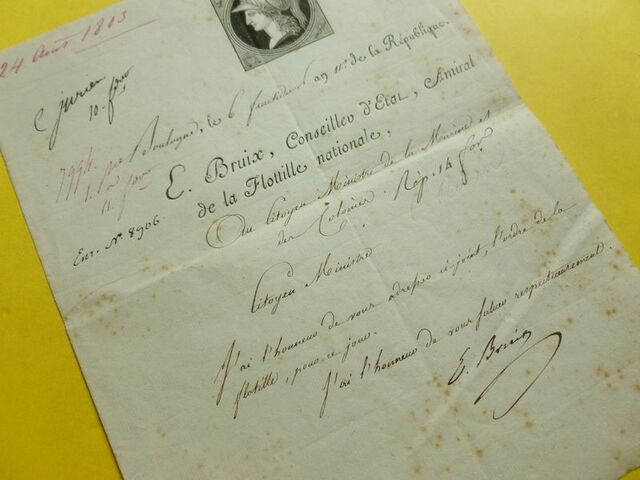 24 Août 1803
jurien
10. for
7994.
1. Per
11. for
Boulogne, le 6 fructidor an 11.e de la République.
E. Bruix, Conseiller d'État, Amiral
de la Flottille nationale,
Enr. N.º 8906.
Au Citoyen Ministre de la Marine et
des Colonies. Rép. 14 for.
Citoyen Ministre
J'ai l'honneur de vous adresser ci-joint, l'ordre de la
flotille, pour ce jour.
J'ai l'honneur de vous saluer respectueusement.
E. Bruix